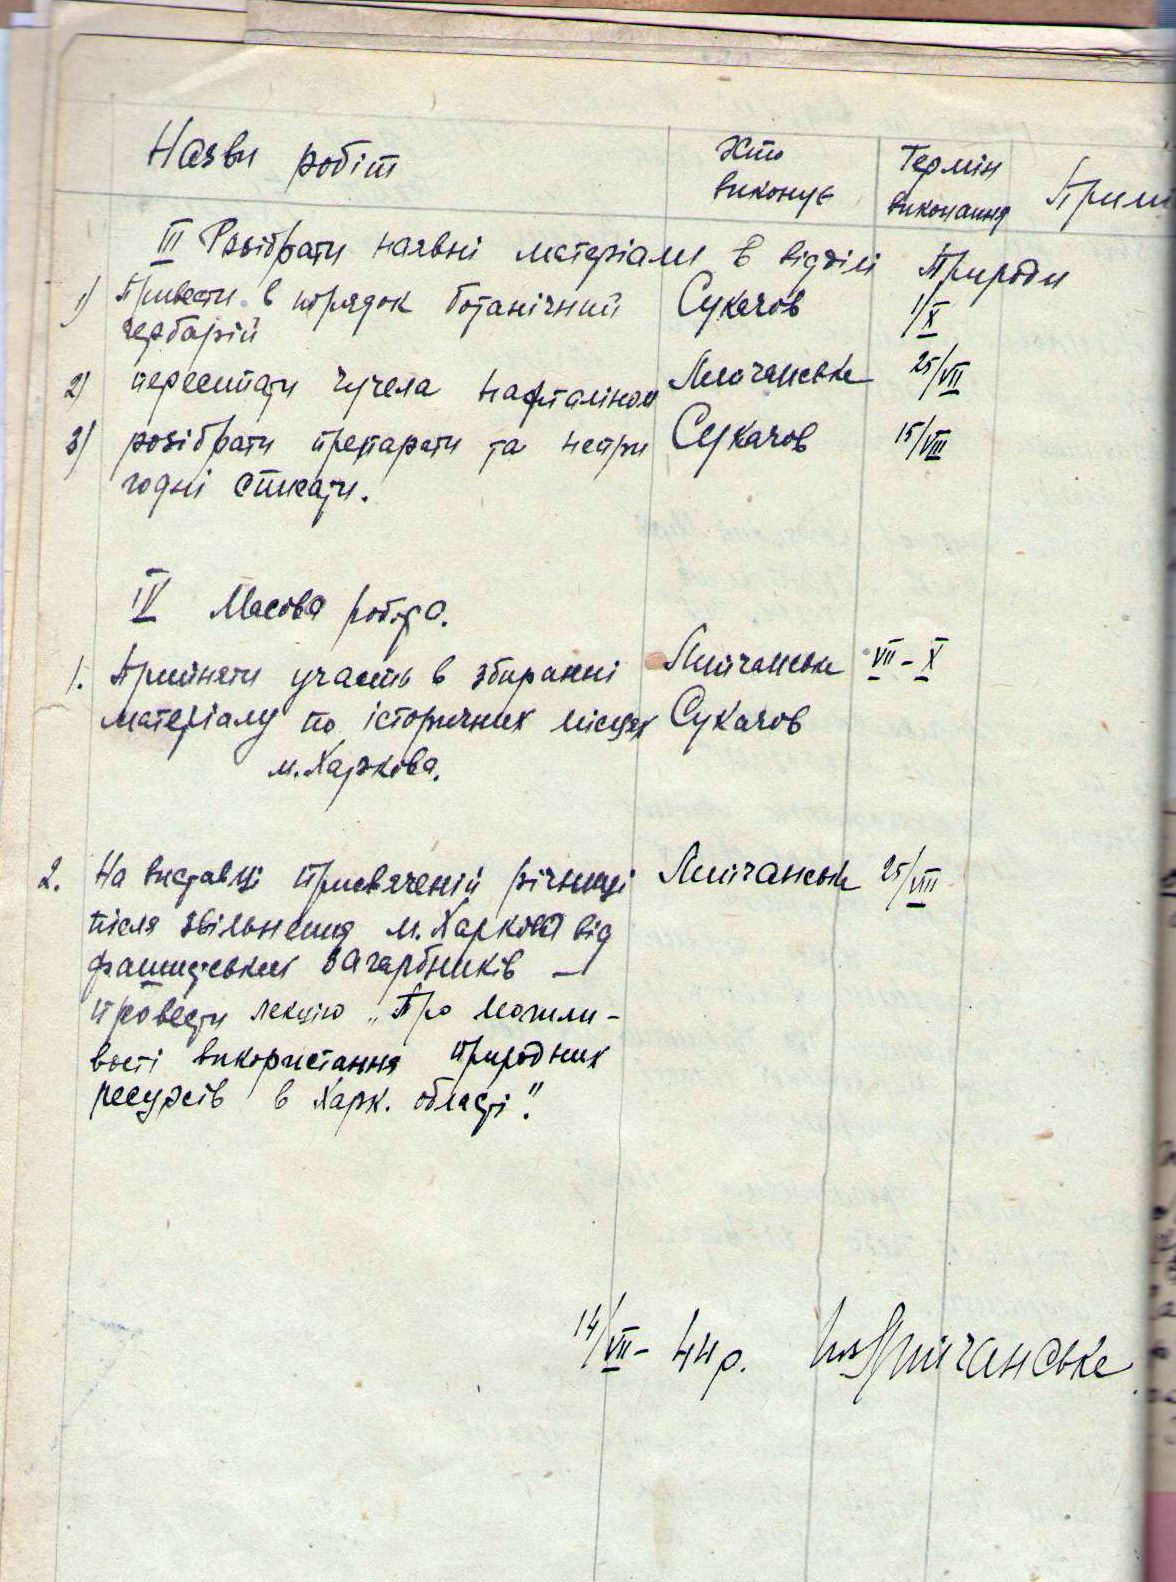 Назви робіт Хто виконує Термін виконання Прим
III Розібрати наявні матеріали в відділі Природи
1) Привести в порядок ботанічний Сукачов 1/X
гербарій
2) пересипати чучела нафталіном 25/VII
3) розібрати препарати та непри Сукачов 15/VIII
годні списати.
IV Масова робота.
1. Прийняти участь в збиранні VII - X
матеріалу по історичних місцях Сукачов
м. Харкова.
2. На виставці присвяченій річниці 25/VIII
після звільнення м. Харкова від
фашистських загарбників —
провести лекцію „Про можли-
вості використання природних
ресурсів в Харк. області".
14/VII - 44 р.